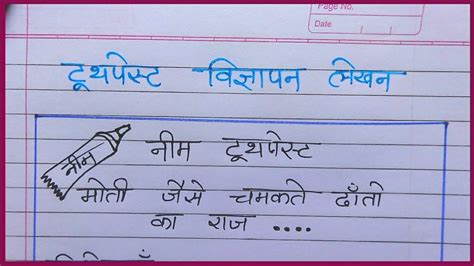 Page No.
Date
टूथपेस्ट विज्ञापन लेखन
नीम
नीम टूथपेस्ट
मोती जैसे चमकते दाँतो
का राज ....